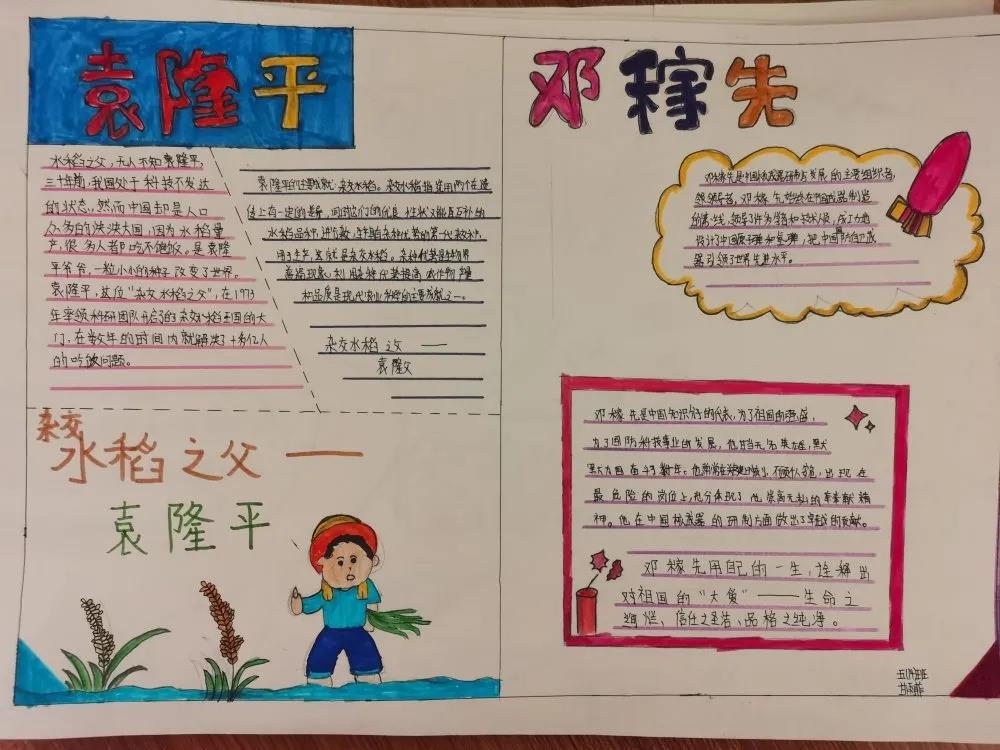 袁隆平
水稻之父,无人不知袁隆平,
三十年前,我国处于科技不发达
的状态,然而中国却是人口
众多的泱泱大国,因为水稻量
产,很多人都吃不饱饭。是袁隆
平爷爷,一粒小小的种子改变了世界。
袁隆平,这位“杂交水稻之父”,在1973
年率领科研团队开启了杂交水稻王国的大
门,在数年的时间内就解决了十多亿人
的吃饭问题。
袁隆平的主要成就:杂交水稻。杂交水稻指选用两个在遗
传上有一定的差异,同时它们的优良性状又能互补的
水稻品种,进行杂交,
用于生产,这就是杂交水稻。杂种优势是生物界
普遍现象,利用杂种优势提高农作物产量
和品质是现代农业科学的主要成就之一。
杂交水稻之父——
袁隆父
杂交
水稻之父——
袁隆平
邓稼先
邓稼先是中国核武器研制与发展的主要组织者,
领导者,邓稼先始终在中国武器制造
的第一线,领导了许多学者和技术人员,成功地
设计了中国原子弹和氢弹,把中国国防自卫武
器引领了世界先进水平。
邓稼先是中国知识分子的代表,为了祖国的强盛,
为了国防科技事业的发展,他甘当无名英雄,默
默无闻奋斗了数十年。他常常在关键时刻,不顾个人安危,出现在
最危险的岗位上,充分体现了他崇高无私的奉献精
神。他在中国核武器的研制方面做出了卓越的贡献。
邓稼先用自己的一生,诠释出
对祖国的“大爱”——生命之
绚烂、信仕之圣洁、品格之纯净。